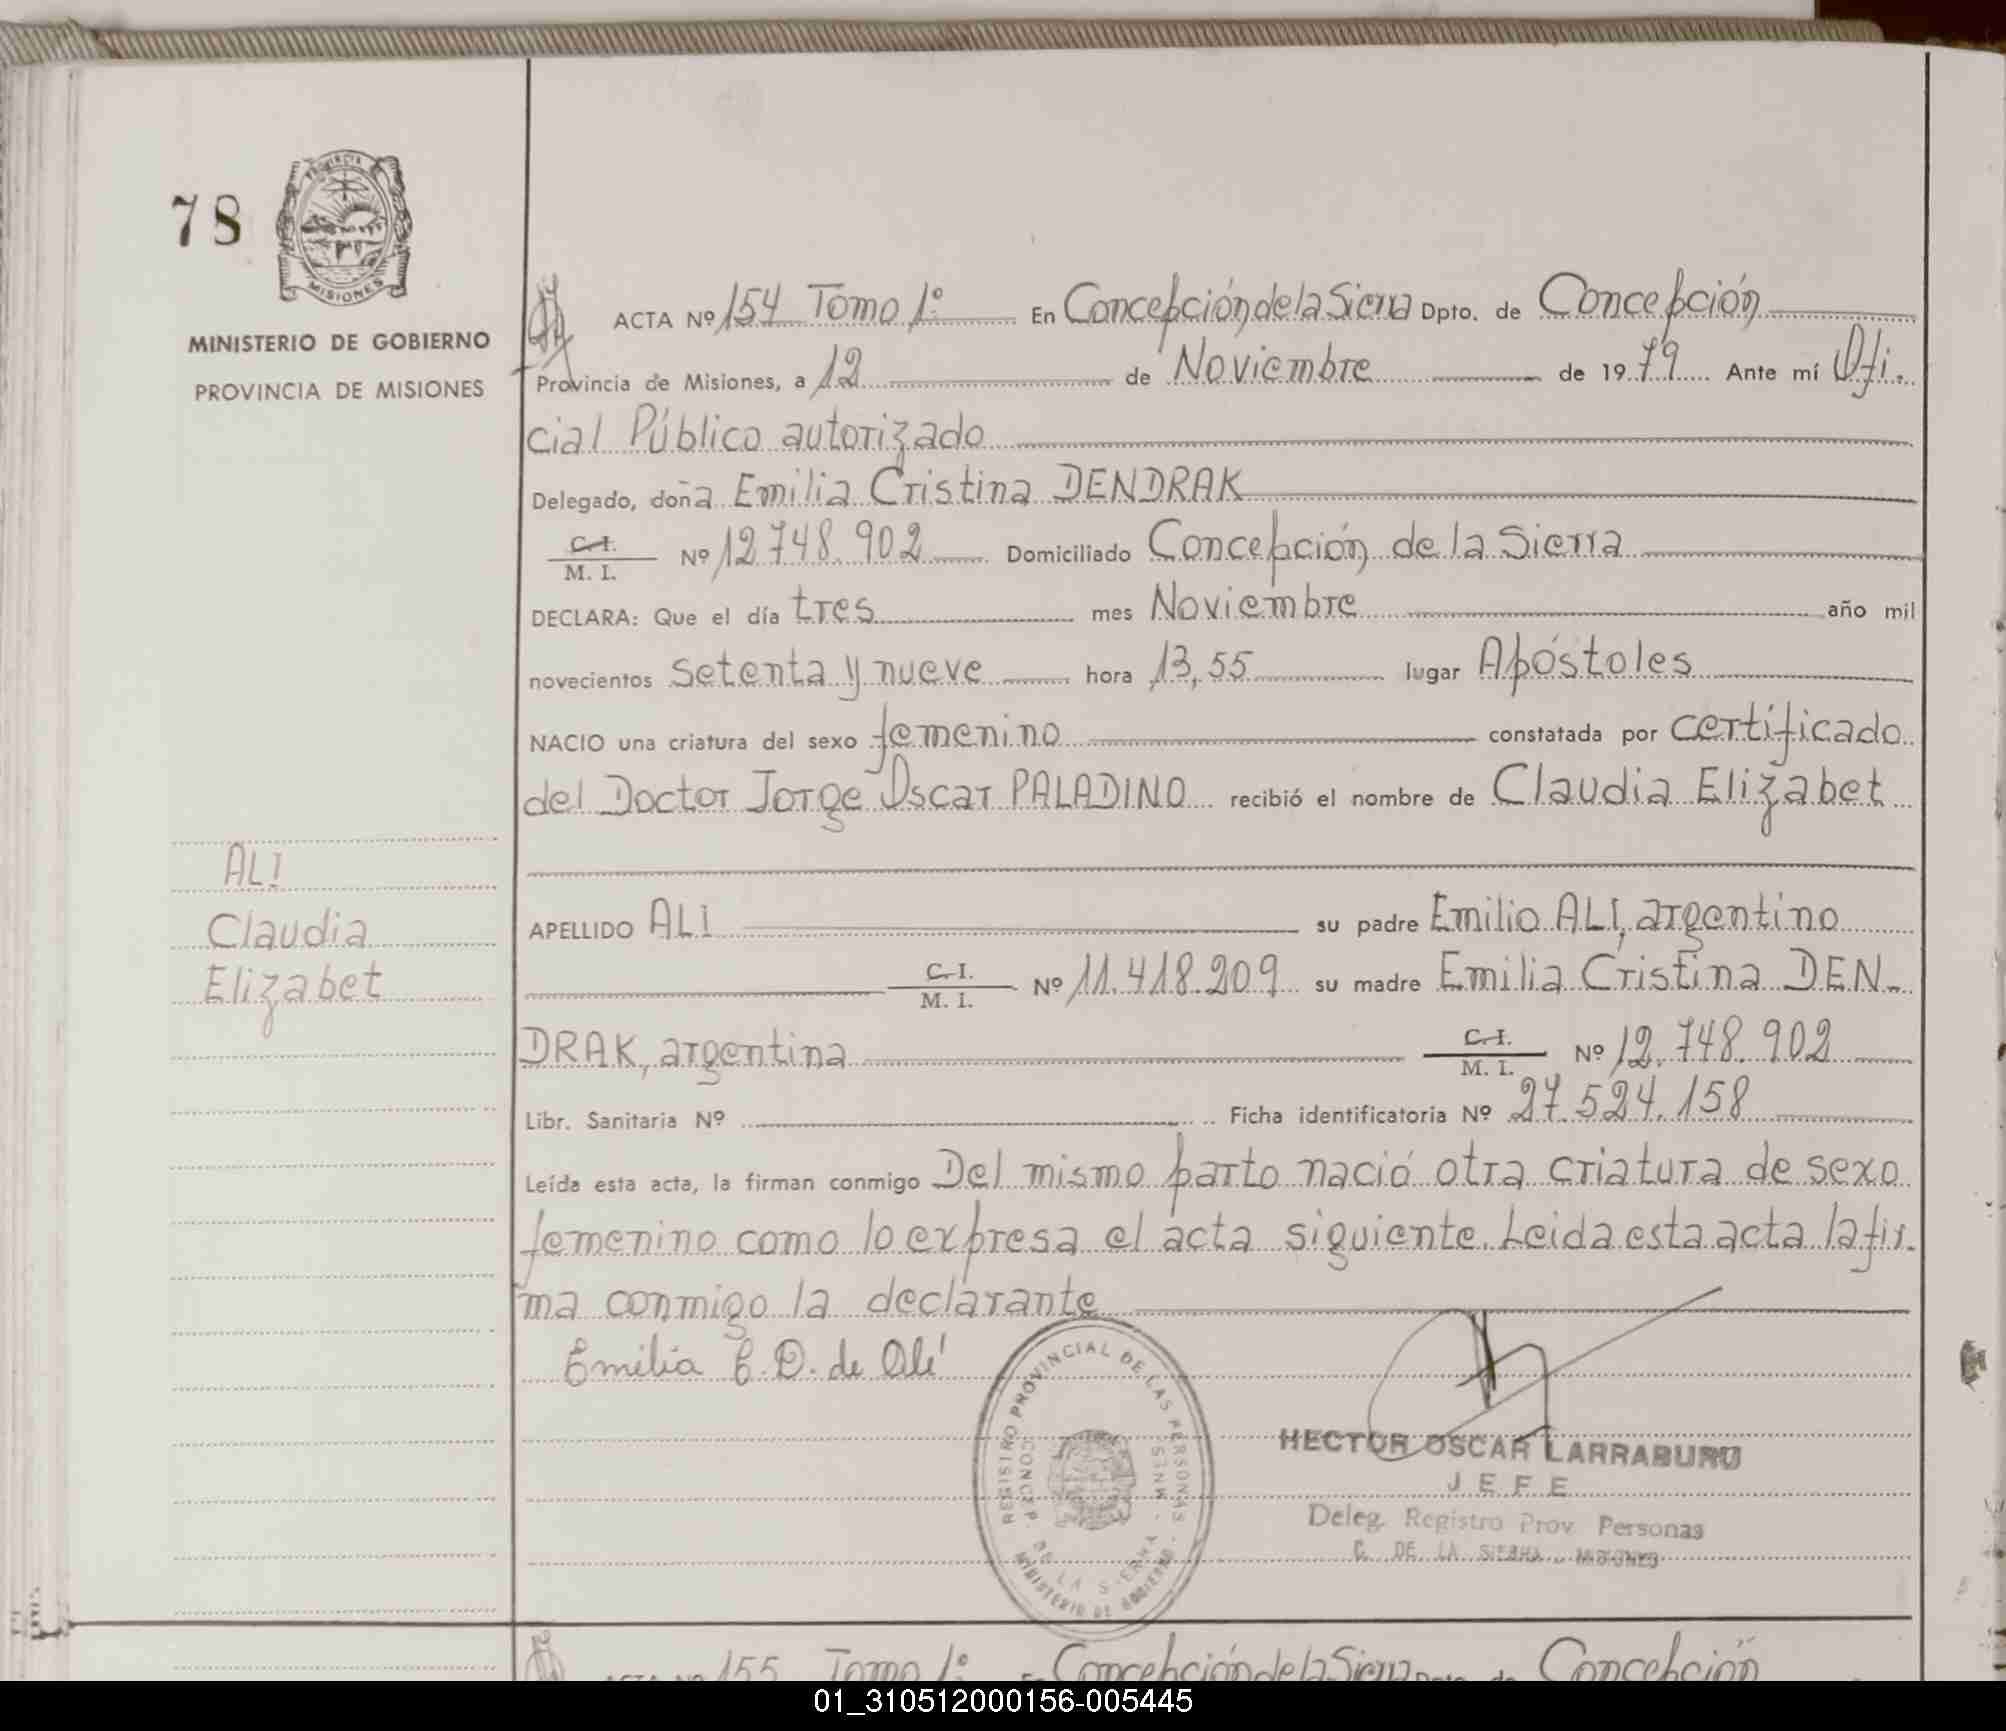 78
PROVINCIA
MISIONES
MINISTERIO DE GOBIERNO
PROVINCIA DE MISIONES
ALI
Claudia
Elizabet
ACTA Nº 154 Tomo 1º En Concepción de la Sierra Dpto. de Concepción
Provincia de Misiones, a 12 de Noviembre de 1979 Ante mí Ofi-
cial Público autorizado
Delegado, doña Emilia Cristina DENDRAK
C. I.
M. I. Nº 12.748.902 Domiciliado Concepción de la Sierra
DECLARA: Que el día tres mes Noviembre año mil
novecientos setenta y nueve hora 13,55 lugar Apóstoles
NACIO una criatura del sexo femenino constatada por certificado
del Doctor Jorge Oscar PALADINO recibió el nombre de Claudia Elizabet
APELLIDO ALI su padre Emilio ALI, argentino
C. I.
M. I. Nº 11.418.209 su madre Emilia Cristina DEN-
DRAK, argentina C. I.
M. I. Nº 12.748.902
Libr. Sanitaria Nº Ficha identificatoria Nº 27.524.158
Leída esta acta, la firman conmigo Del mismo parto nació otra criatura de sexo
femenino como lo expresa el acta siguiente. Leida esta acta la fir-
ma conmigo la declarante
Emilia C. D. de Alí
REGISTRO PROVINCIAL DE LAS PERSONAS
CONCEP. DE LA SIERRA - MNES.
MINISTERIO DE GOBIERNO
HECTOR OSCAR LARRABURU
JEFE
Deleg. Registro Prov. Personas
C. DE LA SIERRA - MISIONES
ACTA Nº 155 Tomo 1º En Concepción de la Sierra Dpto. de Concepción
01_310512000156-005445